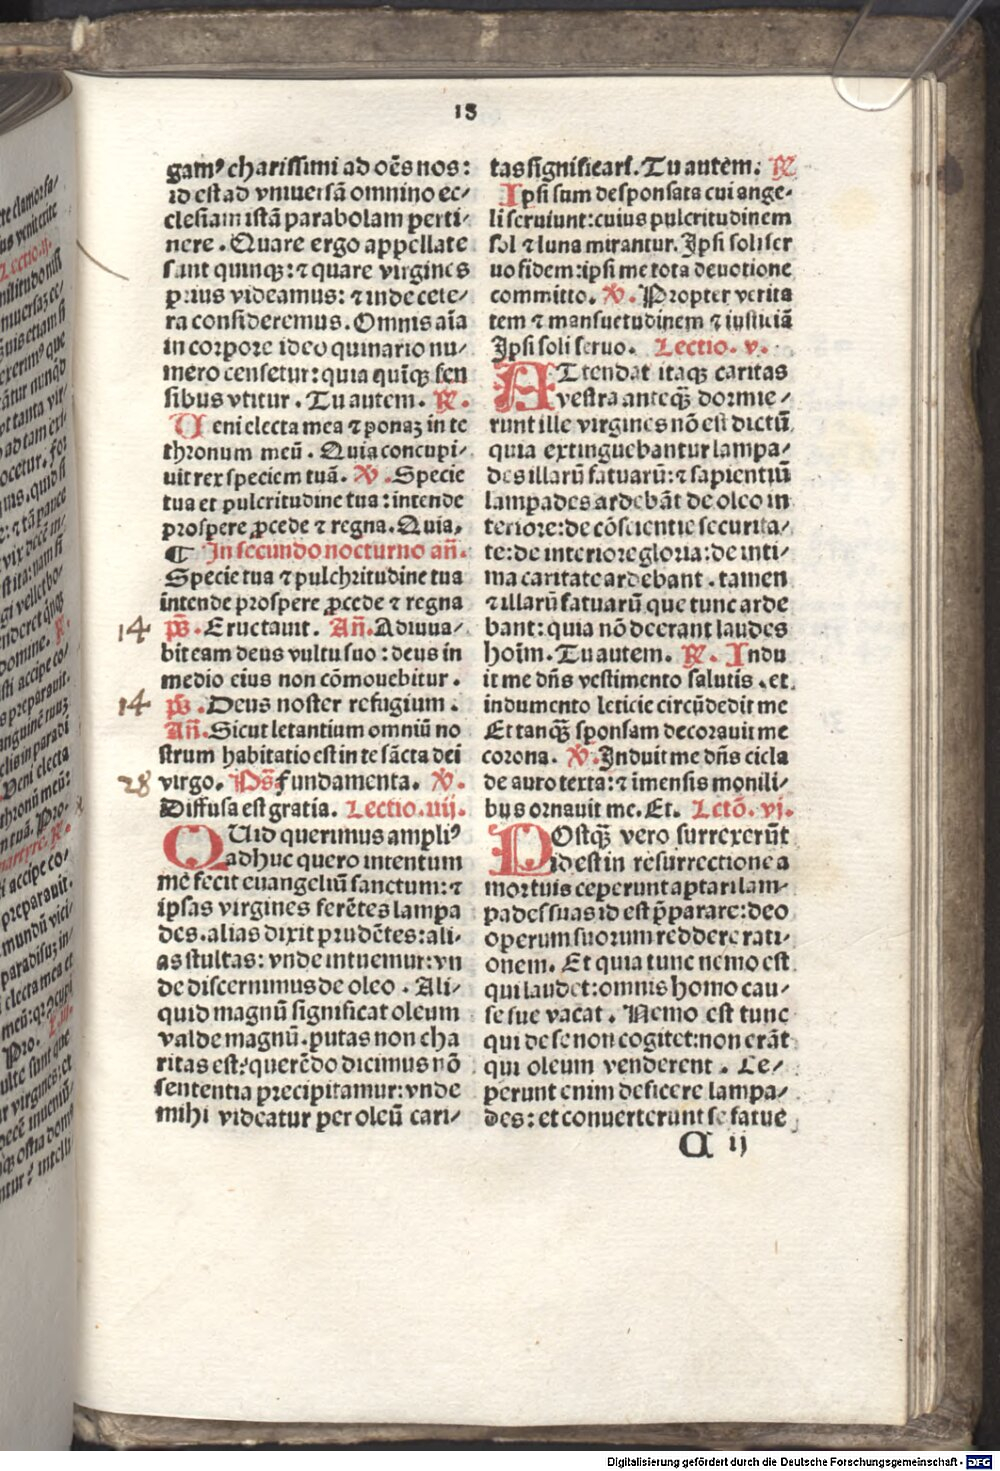 18
gamꝰ charissimi ad oēs nos:
id est ad vniuersā omnino ec-
clesiam istā parabolam perti-
nere. Quare ergo appellate
sunt quinqꝫ: ⁊ quare virgines
prius videamus: ⁊ inde cete-
ra consideremus. Omnis aīa
in corpore ideo quinario nu-
mero censetur: quia quīqꝫ sen
sibus vtitur. Tu autem. ℟.
Ueni electa mea ⁊ ponaꝫ in te
thronum meū. Quia concupi-
uit rex speciem tuā. ℣. Specie
tua et pulcritudine tua: intende
prospere ꝓcede ⁊ regna. Quia.
¶ In secundo nocturno añ.
Specie tua ⁊ pulchritudine tua
intende prospere ꝓcede ⁊ regna
14 pṡ. Eructauit. Añ. Adiuua-
bit eam deus vultu suo: deus in
medio eius non cōmouebitur.
14 pṡ. Deus noster refugium.
Añ. Sicut letantium omniū no
strum habitatio est in te sācta dei
28 virgo. Pṡ. fundamenta. ℣.
Diffusa est gratia. Lectio.iiij.
QUid querimus ampliꝰ
adhuc quero intentum
me fecit euangeliū sanctum: ⁊
ipsas virgines ferētes lampa
des. alias dixit prudētes: ali-
as stultas: vnde intuemur: vn
de discernimus de oleo. Ali-
quid magnū significat oleum
valde magnū. putas non cha
ritas est: querēdo dicimus nō
sententia precipitamur: vnde
mihi videatur per oleū cari-
tas significari. Tu autem. ℟
Ipsi sum desponsata cui ange-
li seruiunt: cuius pulcritudinem
sol ⁊ luna mirantur. Ipsi soli ser
uo fidem: ipsi me tota deuotione
committo. ℣. Propter verita
tem ⁊ mansuetudinem ⁊ iusticiā
Ipsi soli seruo. Lectio. v.
ATtendat itaqꝫ caritas
vestra anteqꝫ̄ dormie-
runt ille virgines nō est dictū
quia extinguebantur lampa-
des illarū fatuarū: ⁊ sapientiū
lampades ardebāt de oleo in
teriore: de cōscientie securita-
te: de interiore gloria: de inti-
ma caritate ardebant. tamen
⁊ illarū fatuarū que tunc arde
bant: quia nō deerant laudes
hoīm. Tu autem. ℟. Indu
it me dñs vestimento salutis. et
indumento leticie circūdedit me
Et tanqꝫ̄ sponsam decorauit me
corona. ℣. Induit me dñs cicla
de auro texta: ⁊ īmensis monili-
bus ornauit me. Et. Lctō. vj.
POstqꝫ̄ vero surrexerūt
id est in resurrectione a
mortuis ceperunt aptari lam-
pades suas id est p̄parare: deo
operum suorum reddere rati-
onem. Et quia tunc nemo est
qui laudet: omnis homo cau-
se sue vacat. Nemo est tunc
qui de se non cogitet: non erāt
qui oleum venderent. Ce-
perunt enim deficere lampa-
des: et conuerterunt se fatue
C ij
Digitalisierung gefördert durch die Deutsche Forschungsgemeinschaft - DFG